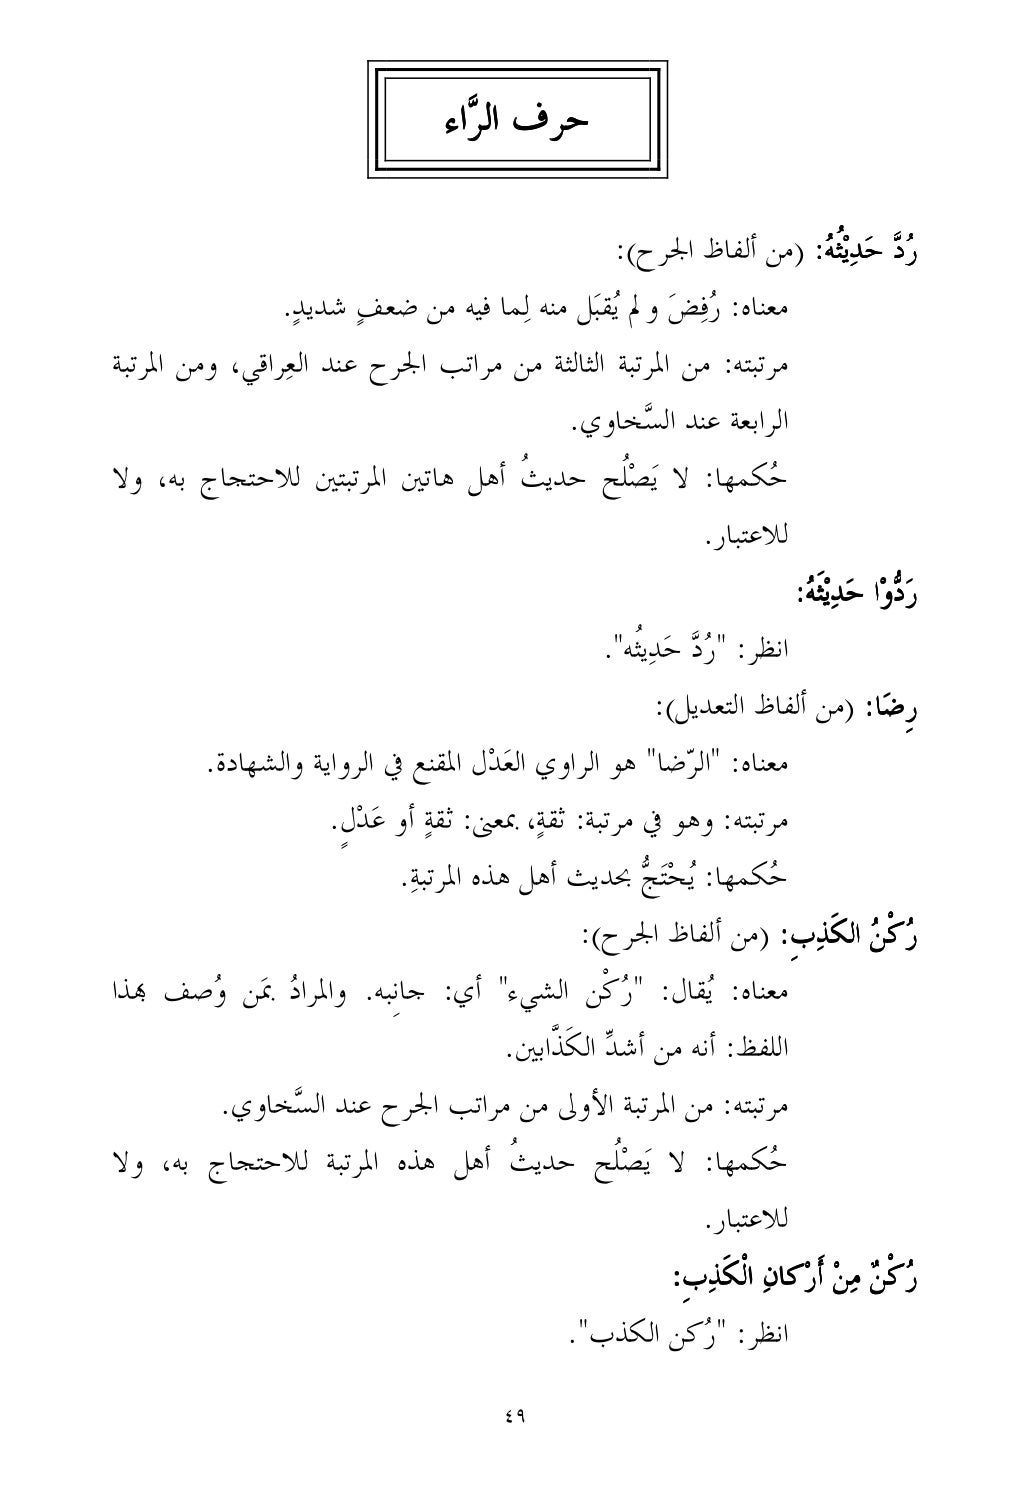 حرف الرَّاء
رُدَّ حَدِيْثُهُ: (من ألفاظ الجرح):
معناه: رُفِضَ و لم يُقبَل منه لِما فيه من ضعفٍ شديدٍ.
مرتبته: من المرتبة الثالثة من مراتب الجرح عند العِراقي، ومن المرتبة
الرابعة عند السَّخاوي.
حُكمها: لا يَصْلُح حديثُ أهل هاتين المرتبتين للاحتجاج به، ولا
للاعتبار.
رَدُّوْا حَدِيْثَهُ:
انظر: "رُدَّ حَدِيثُه".
رِضَا: (من ألفاظ التعديل):
معناه: "الرّضا" هو الراوي العَدْل المقنع في الرواية والشهادة.
مرتبته: وهو في مرتبة: ثقةٍ، بمعنى: ثقةٍ أو عَدْلٍ.
حُكمها: يُحْتَجُّ بحديث أهل هذه المرتبةِ.
رُكْنُ الكَذِبِ: (من ألفاظ الجرح):
معناه: يُقال: "رُكْن الشيء" أي: جانِبه. والمرادُ بمَن وُصف بهذا
اللفظ: أنه من أشدِّ الكَذَّابين.
مرتبته: من المرتبة الأولى من مراتب الجرح عند السَّخاوي.
حُكمها: لا يَصْلُح حديثُ أهل هذه المرتبة للاحتجاج به، ولا
للاعتبار.
رُكْنٌ مِنْ أَرْكانِ الْكَذِبِ:
انظر: "رُكن الكذب".
٤٩